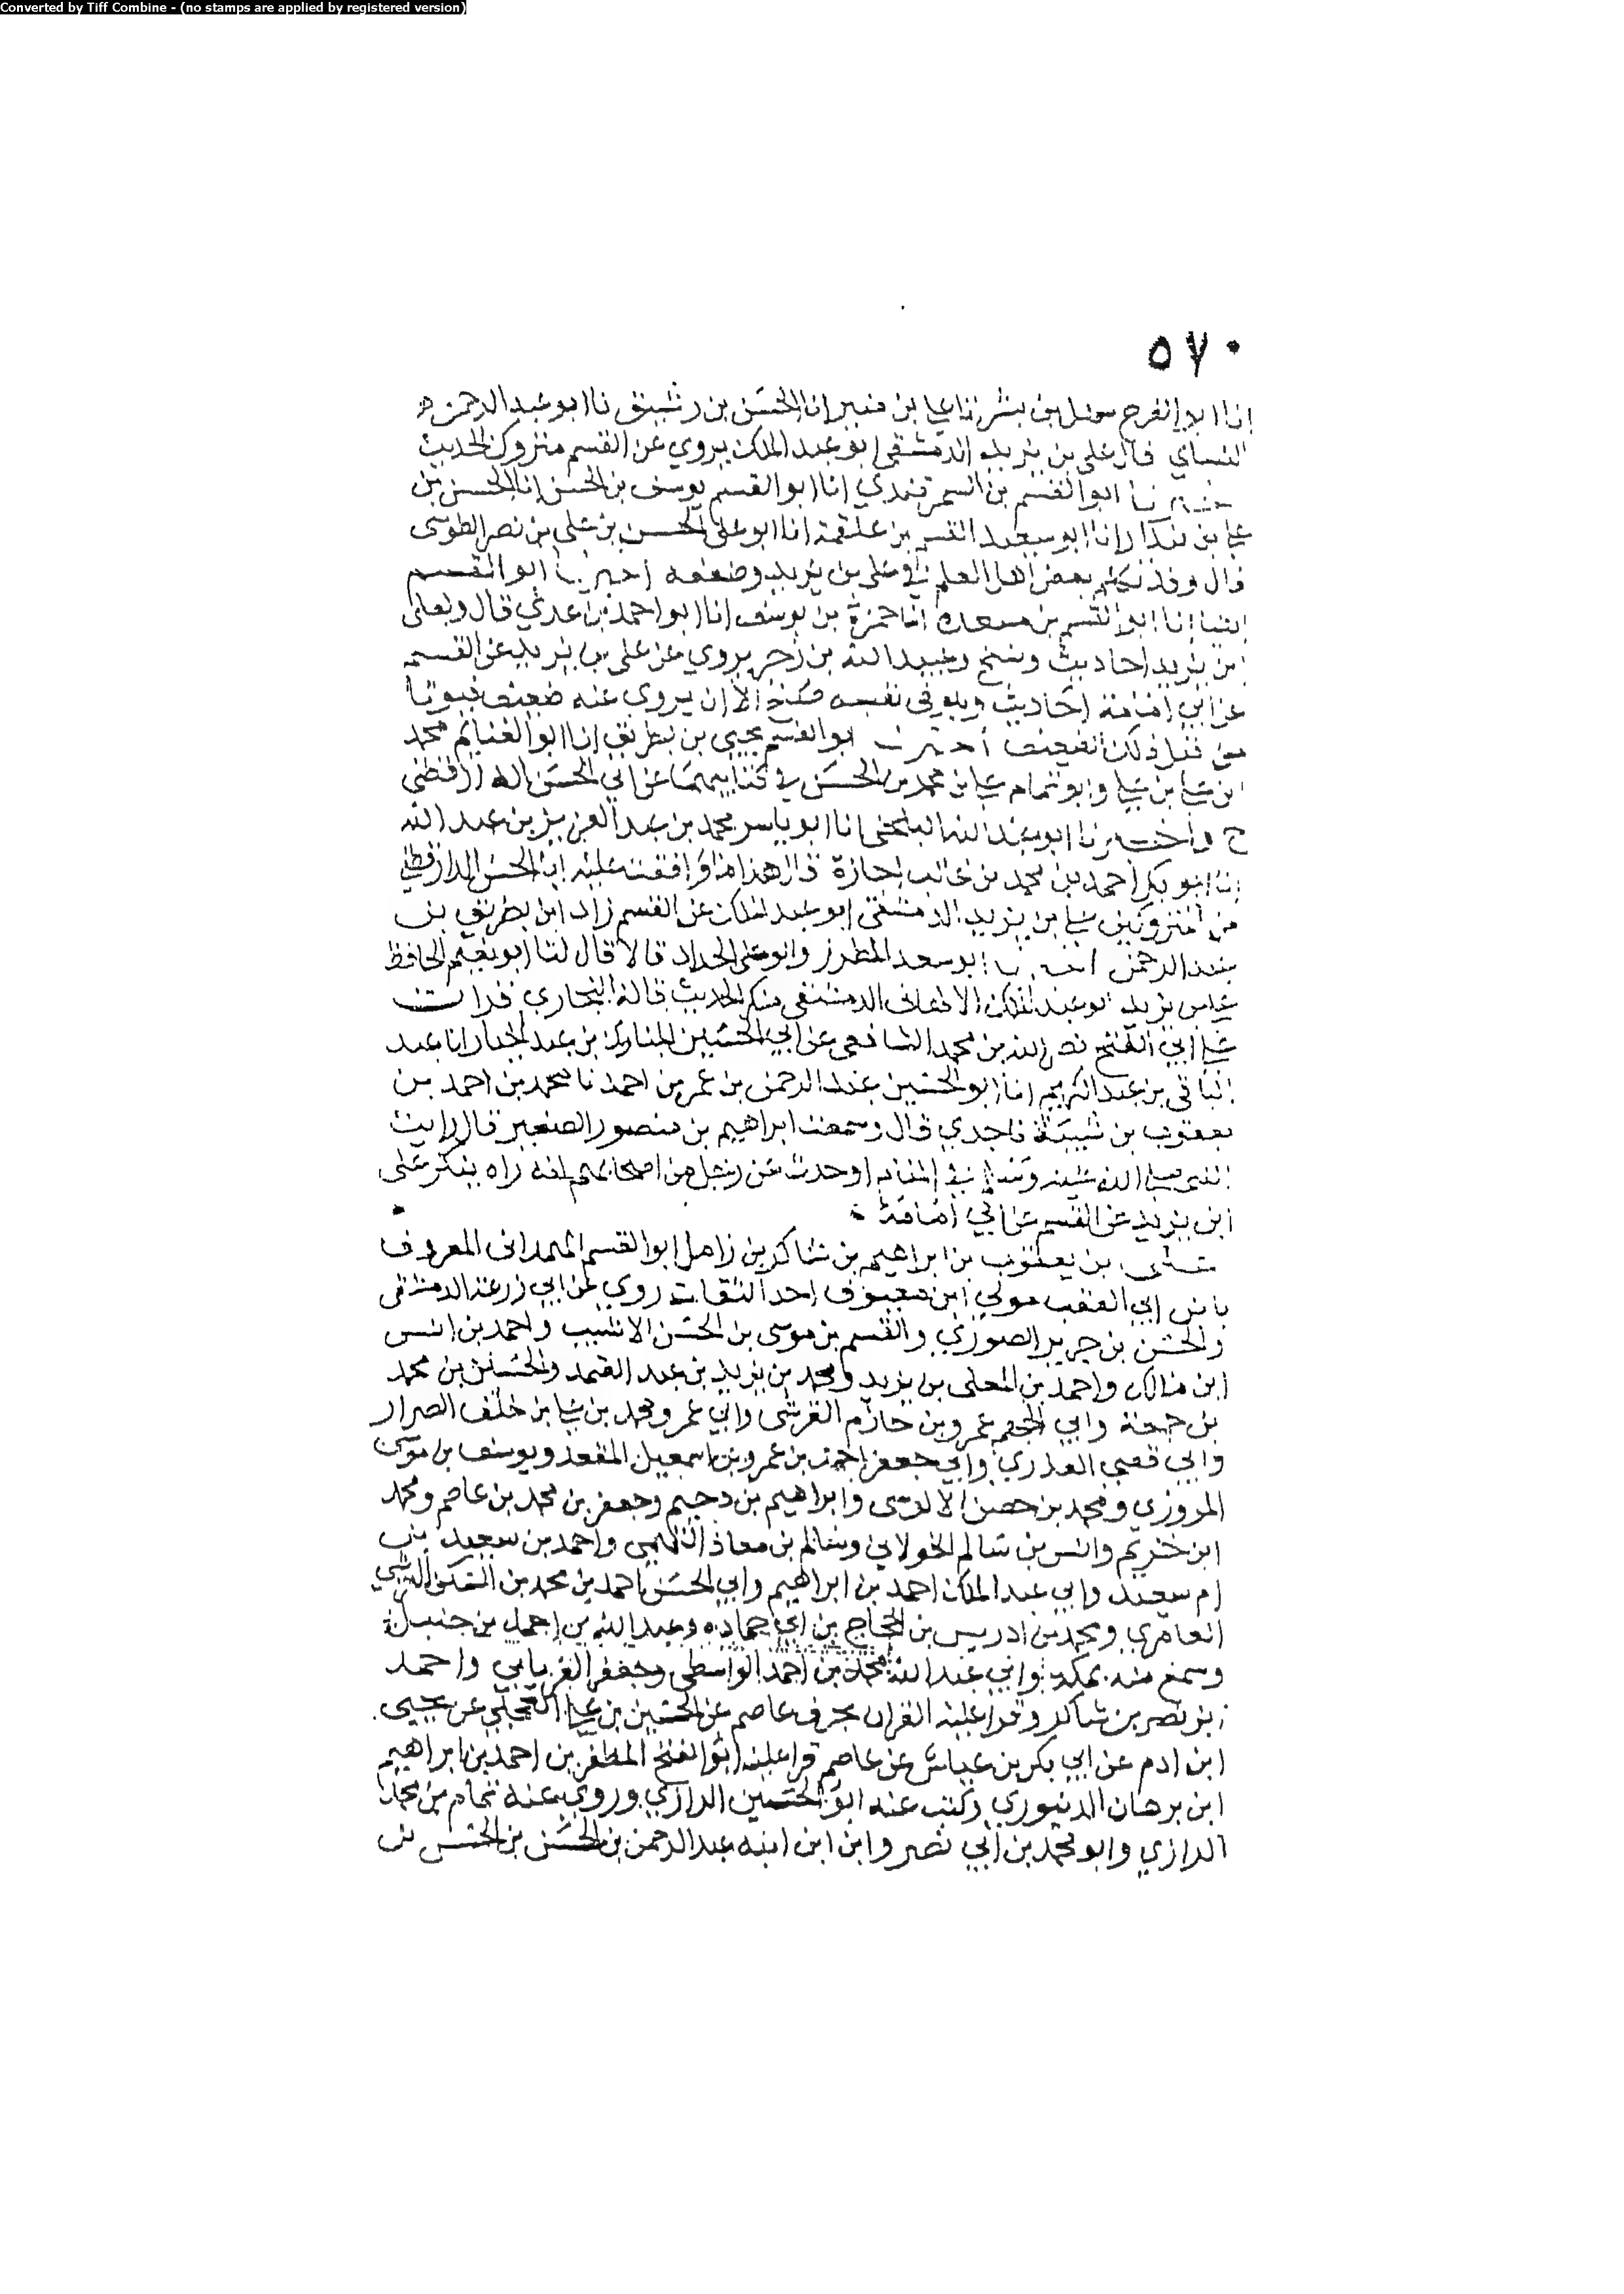 Converted by Tiff Combine - (no stamps are applied by registered version)
٥٧٠
انا ابو الفرج سهل بن بشر انا علي بن منير انا الحسن بن رشيق نا ابو عبد الرحمن
النساي قال علي بن يزيد الدمشقي ابو عبد الملك يروي عن القسم متروك الحديث
ابو القسم بن السمرقندي انا ابو القسم يوسف بن الحسن انا الحسن بن
علي بن بندار انا ابو سعيد القسم بن علقمة انا ابو علي الحسن بن علي بن نصر الطوسي
قال وقد تكلم بعض اهل العلم في علي بن يزيد وضعفه اخبرنا ابو القسم
ايضا انا ابو القسم بن مسعدة انا حمزة بن يوسف انا ابو احمد بن عدي قال ولعلي
بن يزيد احاديث ونسخ وعبيد الله بن زحر يروي عن علي بن يزيد عن القسم
عن ابي امامة احاديث وهو في نفسه صالح الا ان يروي عنه ضعيف فيوتا
من قبل ذلك الضعيف اخبرنا ابو القسم يحيى بن بطريق انا ابو الغنايم محمد
بن علي بن علي وابو تمام علي بن محمد بن الحسن في كتابيهما عن ابي الحسن الدارقطني
ح واخبرنا ابو عبد الله البلخي انا ابو ياسر محمد بن عبد العزيز بن عبد الله
انا ابو بكر احمد بن محمد بن غالب اجازة قال هذا ما وافقت عليه ابا الحسن الدارقطني
من المتروكين علي بن يزيد الدمشقي ابو عبد الملك عن القسم زاد ابن بطريق بن
عبد الرحمن ابو سعد المطرز وابو علي الحداد قالا قال لنا ابو نعيم الحافظ
علي بن يزيد ابو عبد الملك الالهاني الدمشقي منكر الحديث قاله البخاري قرات
علي ابي الفتح نصر الله بن محمد الشافعي عن ابي الحسين المبارك بن عبد الجبار انا عبد
الباقي بن عبد الكريم انا ابو الحسين عبد الرحمن بن عمر بن احمد نا محمد بن احمد بن
يعقوب بن شيبة نا جدي قال وسمعت ابراهيم بن منصور الصغير قال رايت
النبي صلى الله عليه وسلم في المنام او حدث عن رجل من اصحابهم انه راه ينكر على
ابن يزيد عن القسم عن ابي امامة
علي بن يعقوب بن ابراهيم بن شاكر بن زامل ابو القسم الهمداني المعروف
بابن ابي العقب مولي ابن معيوف احد الثقات روي عن ابي زرعة الدمشقي
والحسن بن جرير الصوري والقسم بن موسى بن الحسن الاشيب واحمد بن انس
ابن مالك واحمد بن المعلى بن يزيد ومحمد بن يزيد بن عبد الصمد والحسن بن محمد
بن جمعة وابي الجهم عمرو بن حازم القرشي وابي عمرو محمد بن علي بن خلف الصرار
وابي قصي العذري وابي جعفر احمد بن عمرو بن اسمعيل المقعد ويوسف بن موسى
المروزي ومحمد بن حصن الالوسي وابراهيم بن دحيم وجعفر بن محمد بن عاصم ومحمد
ابن خريم وانس بن سالم الخولاني وسالم بن معاذ التميمي واحمد بن سعيد بن
ام سعيد وابي عبد الملك احمد بن ابراهيم وابي الحسن احمد بن محمد بن السكن
العامري ومحمد بن ادريس بن الحجاج بن ابي حماده وعبد الله بن احمد بن حنبل
وسمع منه بمكة وابي عبد الله محمد بن احمد الواسطي وجعفر الفريابي واحمد
بن نصر بن شاكر وقرا عليه القران بحرف عاصم عن الحسين بن علي العجلي عن يحيى
ابن ادم عن ابي بكر بن عياش عن عاصم قرا عليه ابو الفتح المظفر بن احمد بن ابراهيم
ابن برهان الدينوري وكتب عنه ابو الحسين الرازي وروي عنه تمام بن محمد
الرازي وابو محمد بن ابي نصر وابن ابن ابنه عبد الرحمن بن الحسن بن الحسن بن